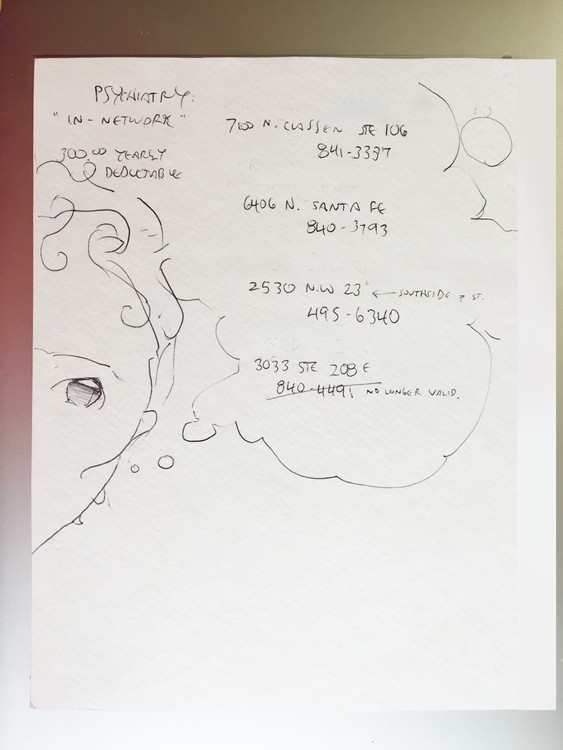 PSYCHIATRY:
"IN-NETWORK"
300.00 YEARLY
DEDUCTABLE
7100 N. CLASSEN STE 106
841-3337
6406 N. SANTA FE
840-3793
2530 N.W 23 ← SOUTHSIDE ST.
495-6340
3033 STE 208 E
840-4491 NO LONGER VALID.